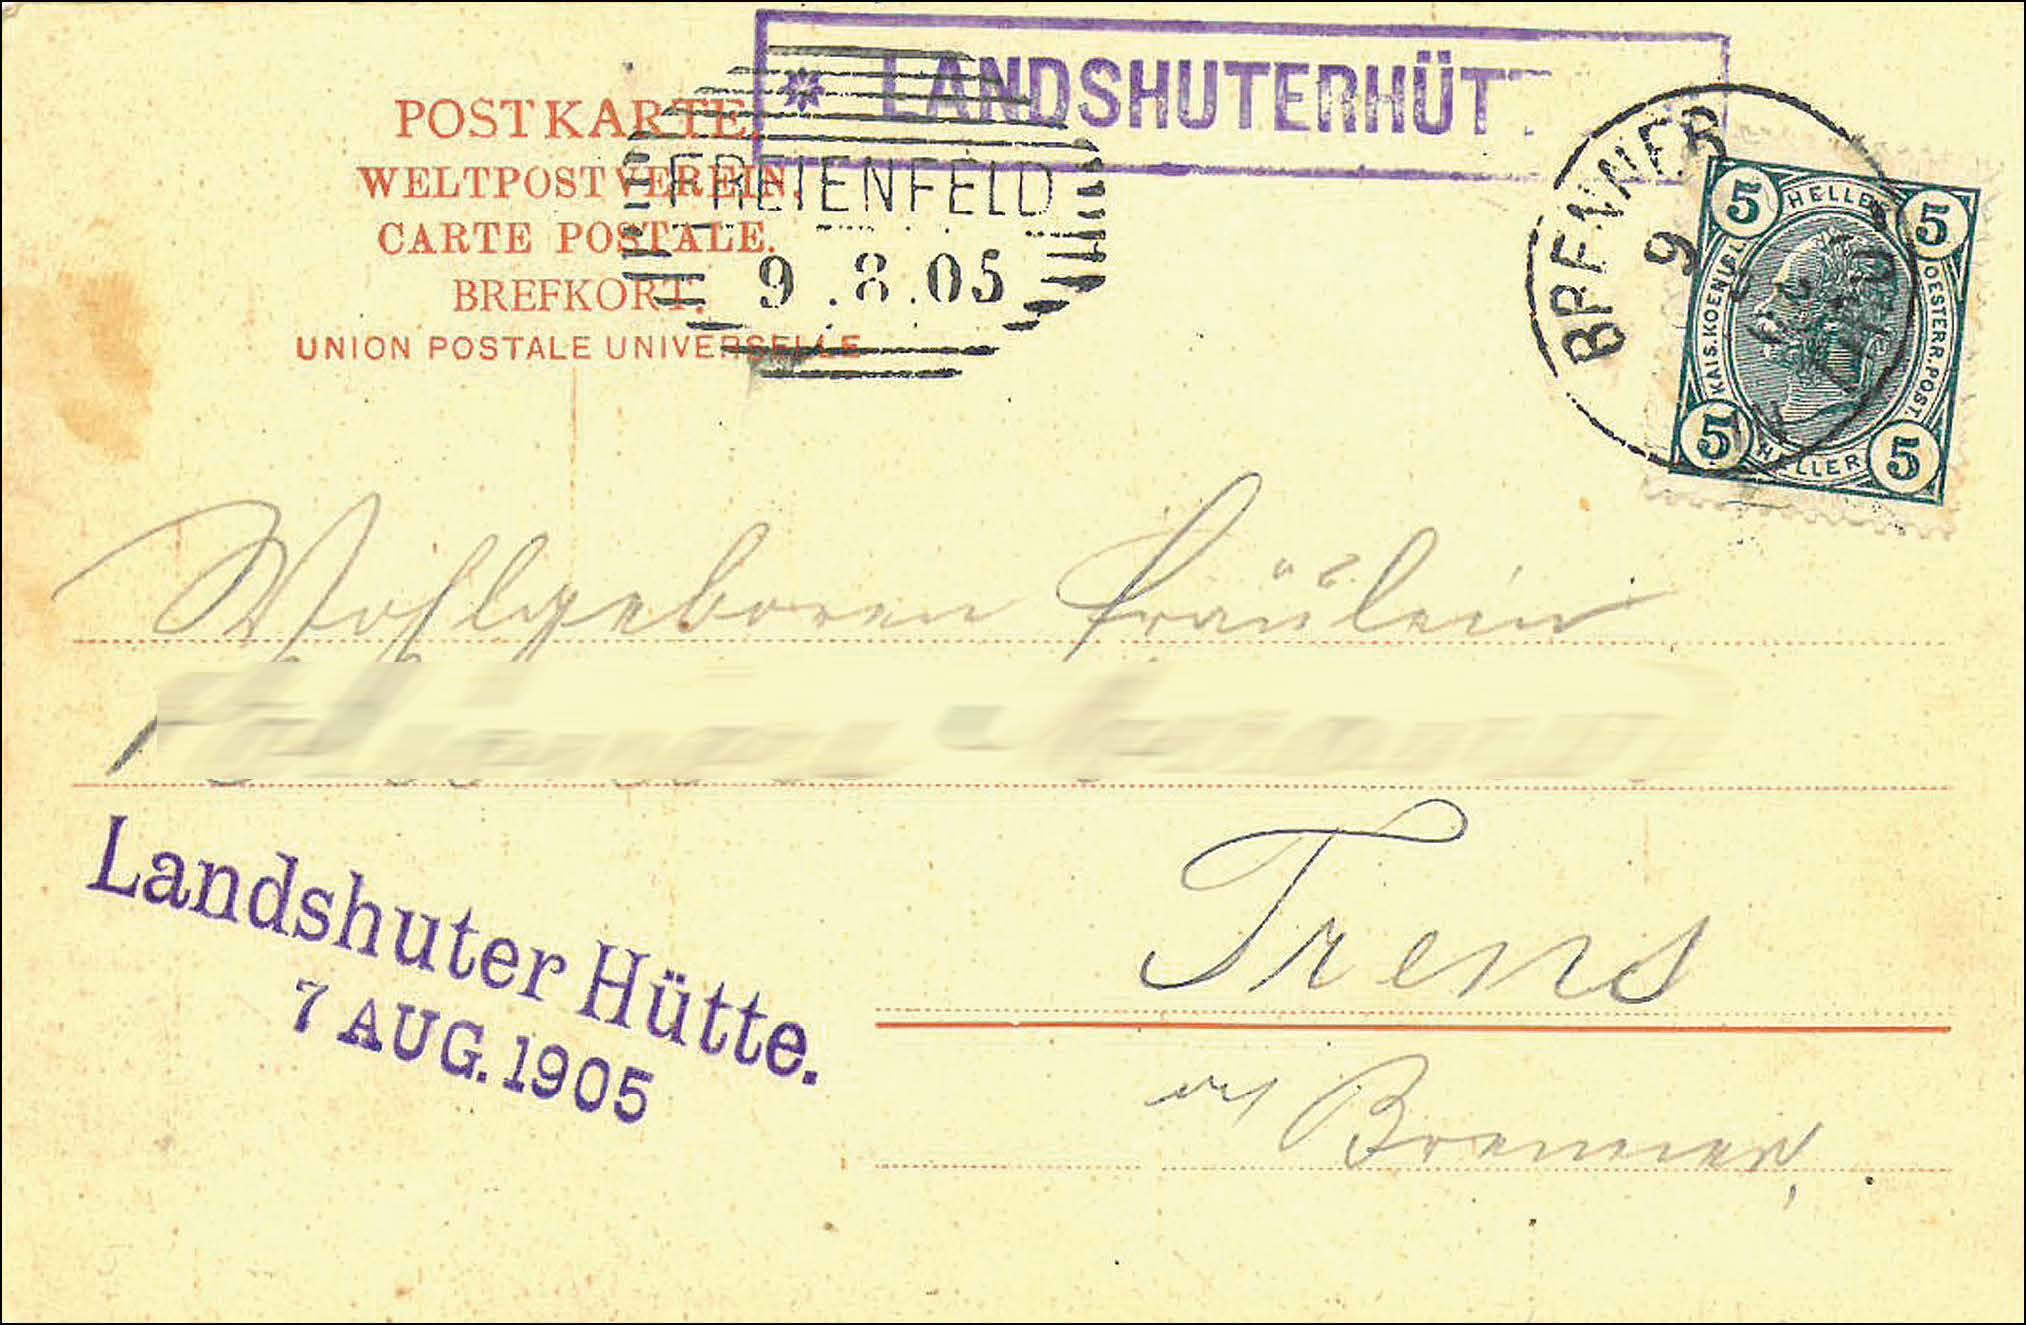 * LANDSHUTERHÜT
POSTKARTE.
WELTPOSTVEREIN.
CARTE POSTALE.
BREFKORT.
UNION POSTALE UNIVERSELLE
FREIENFELD
9.8.05
BRENNER
9
5 HELLER 5
KAIS.KOENIGL. OESTERR.POST.
5 HELLER 5
Wohlgeboren Fräulein
Trens
Landshuter Hütte.
7 AUG. 1905
Brenner